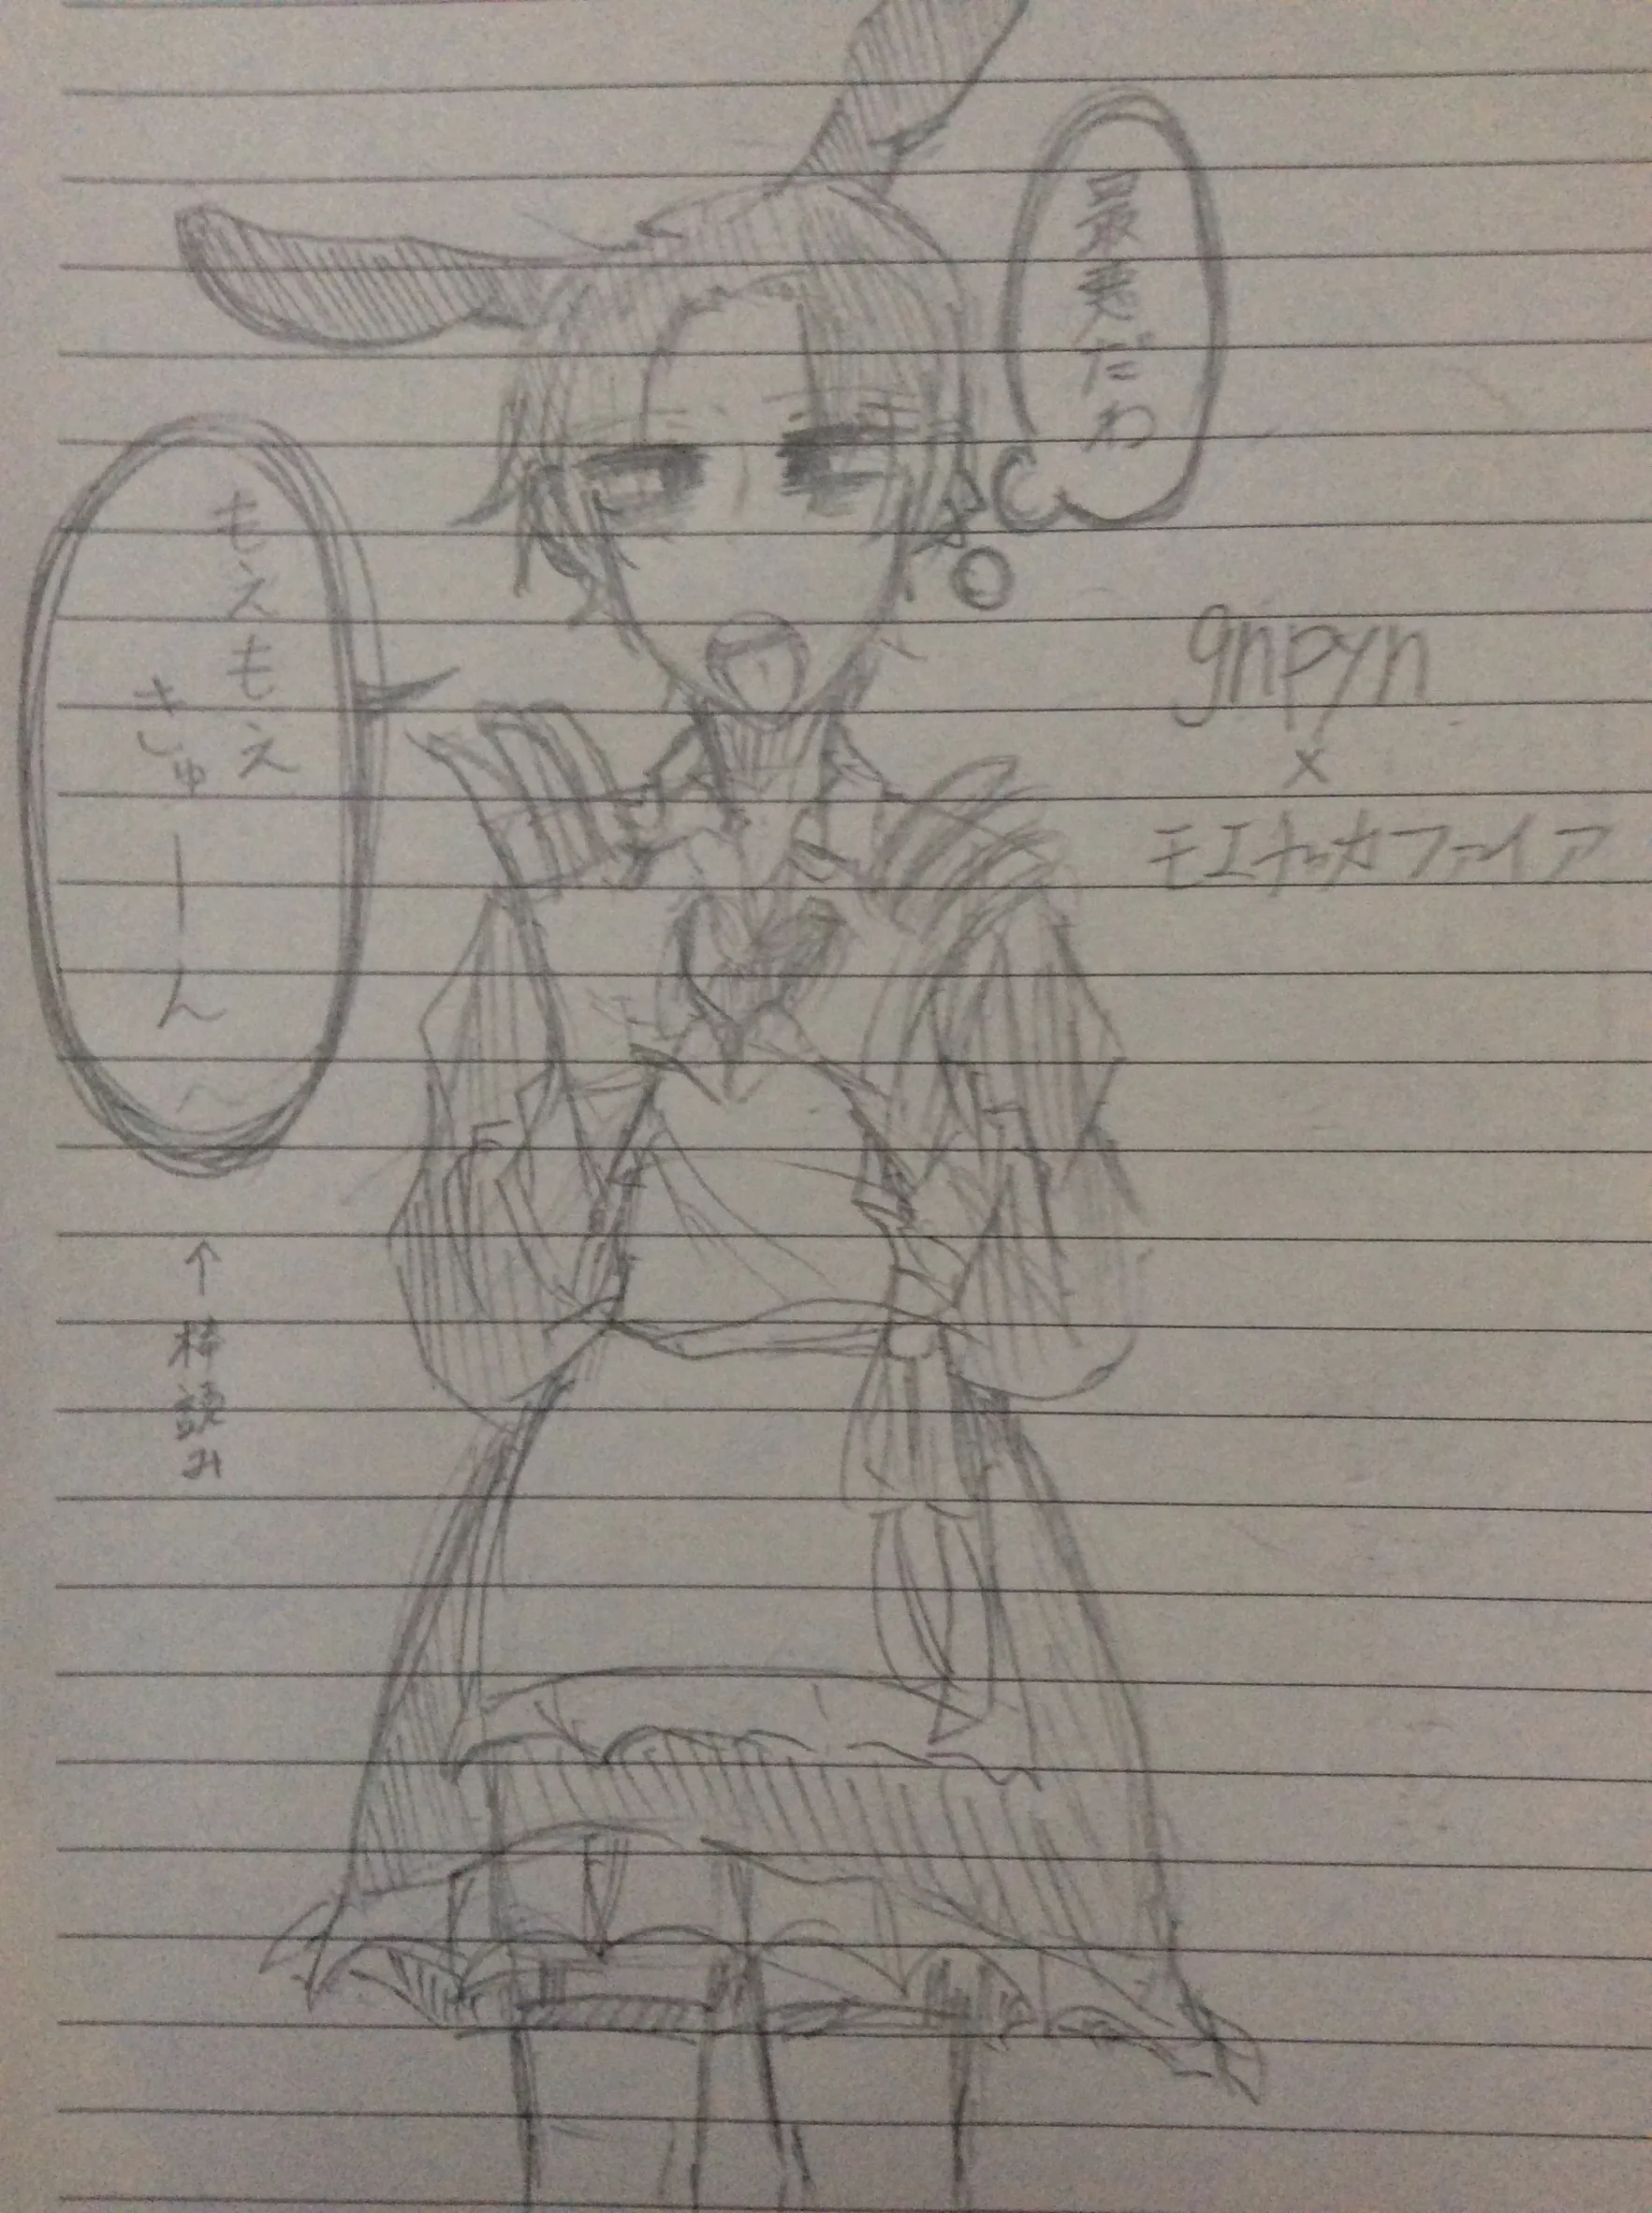 最悪だわ
もえもえ
きゅーん
gnpyn
×
モエチャッカファイア
↑棒読み